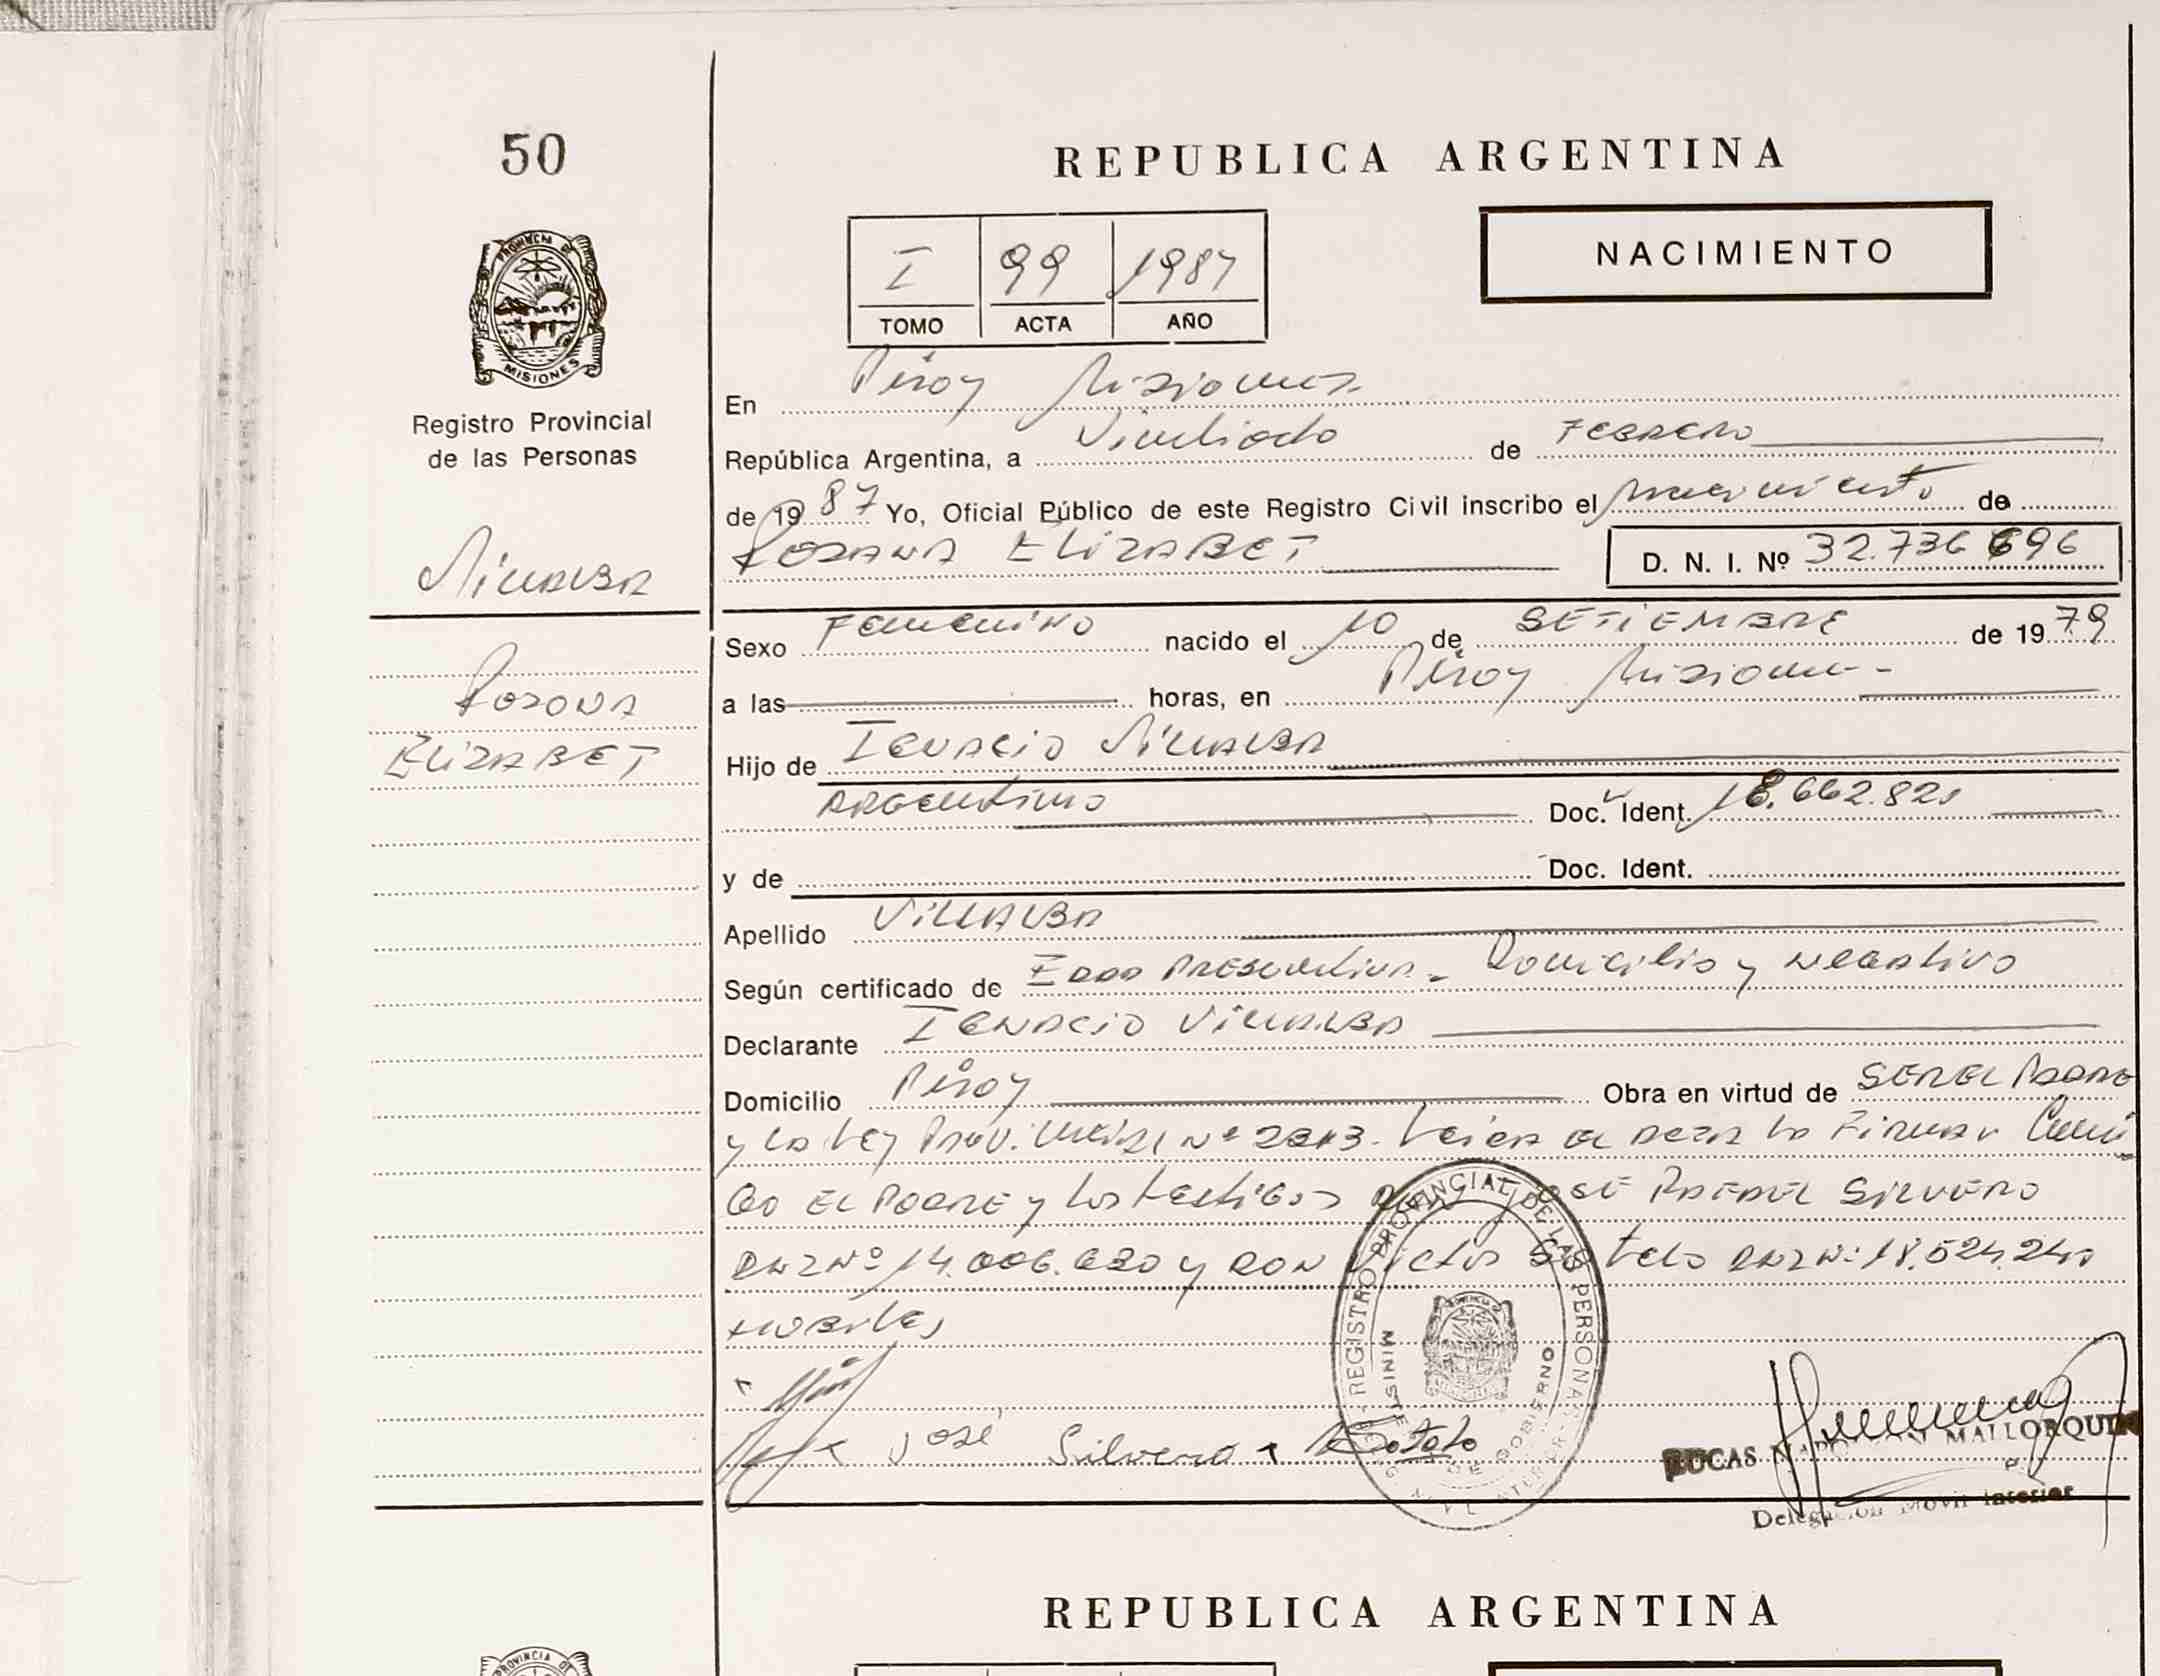 50
REPUBLICA ARGENTINA
NACIMIENTO
I 99 1987
TOMO ACTA AÑO
PROVINCIA DE
MISIONES
Registro Provincial
de las Personas
Villalba
Rosana
ELIZABET
En Piray Misiones
República Argentina, a Veintiocho de FEBRERO
de 1987 Yo, Oficial Público de este Registro Civil inscribo el nacimiento de
ROSANA ELIZABET D. N. I. Nº 32.736 696
Sexo Femenino nacido el 10 de SETIEMBRE de 1979
a las horas, en Piray Misiones
Hijo de Ignacio Villalba
Argentino Doc. Ident. 18.662.821
y de Doc. Ident.
Apellido VILLALBA
Según certificado de Edad Presuntiva - Domicilio y negativo
Declarante Ignacio Villalba
Domicilio Piray Obra en virtud de SER EL PADRE
y la Ley Prov. Nº Leida el acta la Firman Conmi
go EL PADRE y los testigos José Rafael Silvero
DNI Nº 14.006.630 y Don Victor Sotelo DNI Nº 18.524.240
habiles
José Silvero Sotelo
REGISTRO PROVINCIAL DE LAS PERSONAS
DE GOBIERNO
LUCAS MALLORQUIN
Delegación Movil Interior
REPUBLICA ARGENTINA
PROVINCIA DE